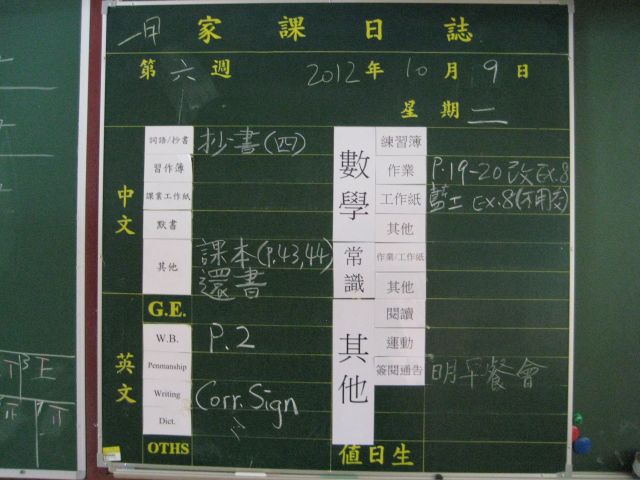 一甲 家課日誌
第六週 2012年10月9日
星期二
中文
詞語/抄書 抄書(四)
習作簿
課業工作紙
默書
其他 課本(p.43,44)
還書
G.E.
英文
W.B. P.2
Penmanship
Writing Corr. Sign
Dict.
OTHS
數學
練習簿
作業 P.19-20改Ex.8
工作紙 藍工 Ex.8(不用交)
其他
常識
作業/工作紙
其他
其他
閱讀
運動
簽閱通告 明早餐會
值日生